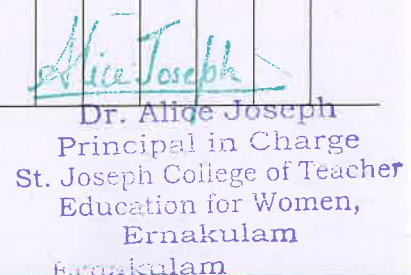 Alice Joseph
Dr. Alice Joseph
Principal in Charge
St. Joseph College of Teacher
Education for Women,
Ernakulam
Ernakulam